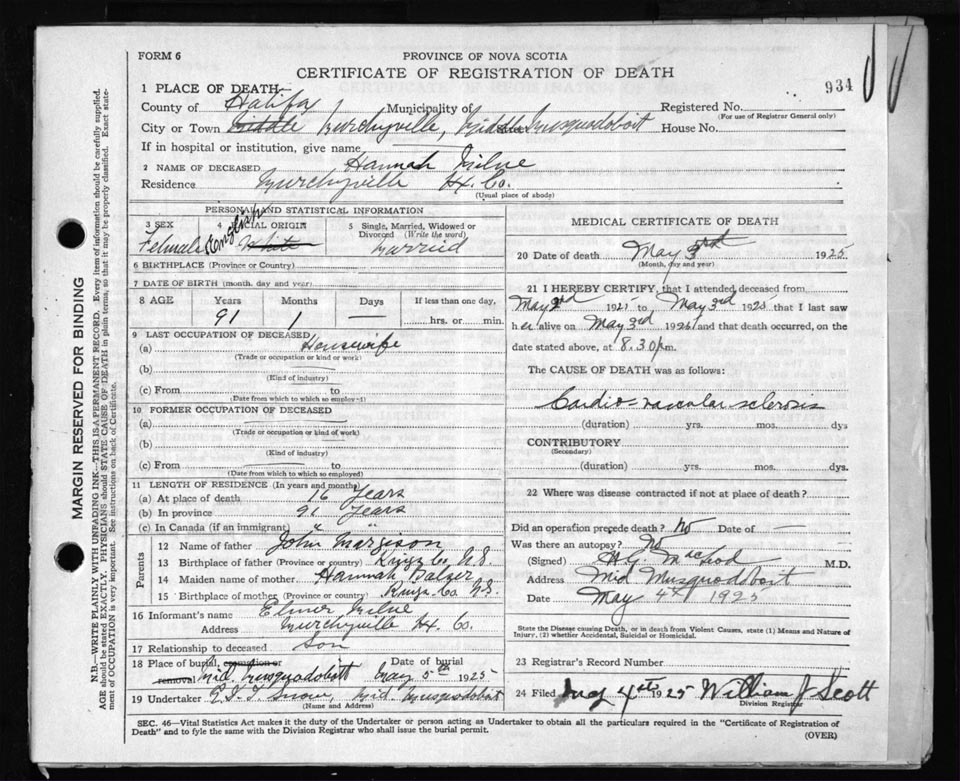 FORM 6
PROVINCE OF NOVA SCOTIA
CERTIFICATE OF REGISTRATION OF DEATH
934
1 PLACE OF DEATH:
County of Halifax Municipality of Registered No.
(For use of Registrar General only)
City or Town Middle Murchyville, Middle Musquodoboit House No.
If in hospital or institution, give name
2 NAME OF DECEASED Hannah Milne
Residence Murchyville Hx. Co.
(Usual place of abode)
PERSONAL AND STATISTICAL INFORMATION
3 SEX 4 RACIAL ORIGIN 5 Single, Married, Widowed or Divorced (Write the word)
Female English White Married
6 BIRTHPLACE (Province or Country)
7 DATE OF BIRTH (month, day and year)
8 AGE Years Months Days If less than one day,
91 1 — hrs. or min.
9 LAST OCCUPATION OF DECEASED
(a) Housewife
(Trade or occupation or kind or work)
(b)
(Kind of industry)
(c) From to
(Date from which to which so employed)
10 FORMER OCCUPATION OF DECEASED
(a)
(Trade or occupation or kind of work)
(b)
(Kind of industry)
(c) From to
(Date from which to which so employed)
11 LENGTH OF RESIDENCE (In years and months)
(a) At place of death 16 Years
(b) In province 91 Years
(c) In Canada (if an immigrant) " "
Parents
12 Name of father John Margeson
13 Birthplace of father (Province or country) Kings Co. N.S.
14 Maiden name of mother Hannah Balser
15 Birthplace of mother (Province or country) Kings Co. N.S.
16 Informant's name Elmer Milne
Address Murchyville Hx. Co.
17 Relationship to deceased Son
18 Place of burial, cremation or removal Mid. Musquodoboit Date of burial May 5th 1925
19 Undertaker Snow, Mid. Musquodoboit
(Name and Address)
MEDICAL CERTIFICATE OF DEATH
20 Date of death May 3rd 1925
(Month, day and year)
21 I HEREBY CERTIFY, that I attended deceased from
May 2nd 1925 to May 3rd 1925 that I last saw
her alive on May 3rd 1925 and that death occurred, on the
date stated above, at 8.30 p.m.
The CAUSE OF DEATH was as follows:
Cardio-vascular sclerosis
(duration) yrs. mos. dys
CONTRIBUTORY
(Secondary)
(duration) yrs. mos. dys.
22 Where was disease contracted if not at place of death?
Did an operation precede death? No Date of —
Was there an autopsy? No
(Signed) M.D.
Address Mid Musquodoboit
Date May 4th 1925
State the Disease causing Death, or in death from Violent Causes, state (1) Means and Nature of
Injury, (2) whether Accidental, Suicidal or Homicidal.
23 Registrar's Record Number
24 Filed May 4th 1925 William J Scott
Division Registrar
SEC. 46—Vital Statistics Act makes it the duty of the Undertaker or person acting as Undertaker to obtain all the particulars required in the "Certificate of Registration of
Death" and to fyle the same with the Division Registrar who shall issue the burial permit.
(OVER)
MARGIN RESERVED FOR BINDING
N.B.—WRITE PLAINLY WITH UNFADING INK—THIS IS A PERMANENT RECORD. Every item of information should be carefully supplied.
AGE should be stated EXACTLY. PHYSICIANS should STATE CAUSE OF DEATH in plain terms, so that it may be properly classified. Exact state-
ment of OCCUPATION is very important. See instructions on back of Certificate.